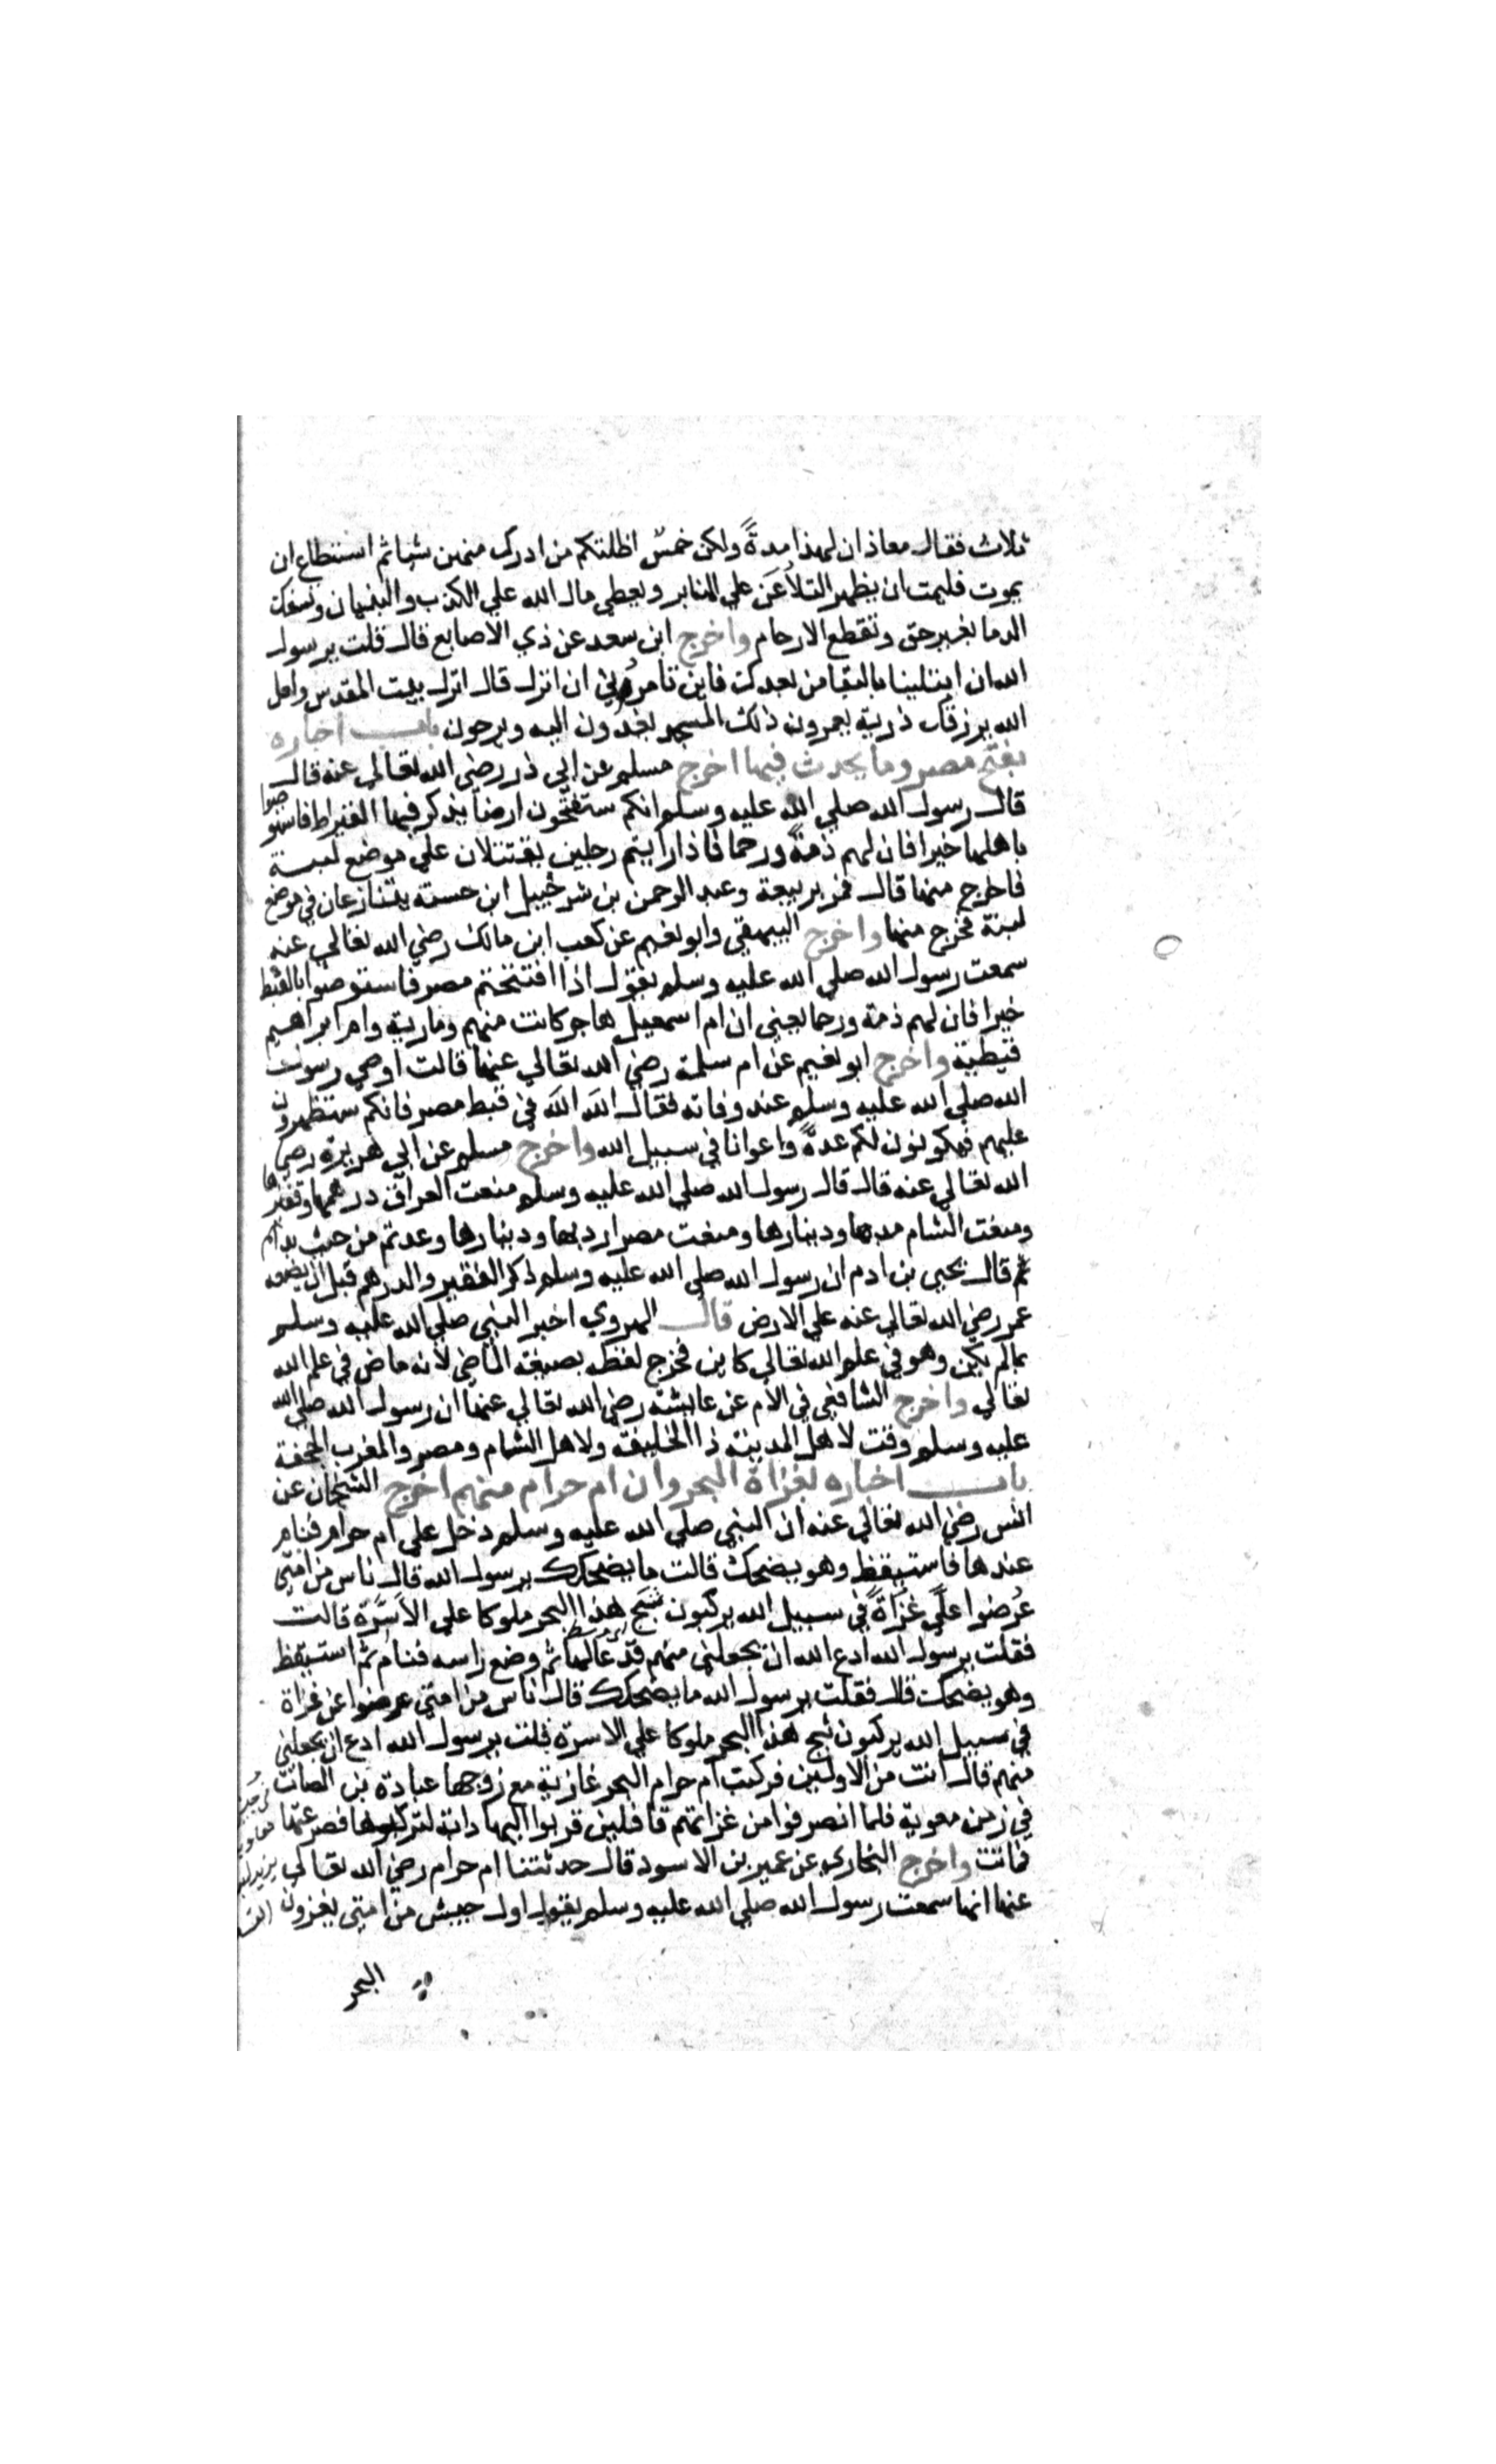 ثلاث فقال معاذ ان لهذا مدةً ولكن خمسٌ اظلتكم من ادرك منهن شيا ثم استطاع ان
يموت فليمت ان يظهر التلاعن علي المنابر ويعطي مال الله علي الكذب والبنيان وتسفك
الدما بغير حق وتقطع الارحام واخرج ابن سعد عن ذي الاصابع قال قلت يرسول
الله ان ابتلينا بالبقا من بعدك فاين تامرني ان انزل قال انزل بيت المقدس ولعل
الله يرزقك ذرية يعمرون ذلك المسجد يغدون اليه ويرحون باب اخباره
بفتح مصر وما يحدث فيها اخرج مسلم عن ابي ذر رضي الله تعالي عنه قال
قال رسول الله صلي الله عليه وسلم انكم ستفتحون ارضاً يذكر فيها القيراط فاستوصوا
باهلها خيرا فان لهم ذمةً ورحما فاذا رايتم رجلين يقتتلان علي موضع لبنة
فاخرج منها قال فمر بربيعة وعبد الرحمن بن شرحبيل ابن حسنه يتنازعان في موضع
لبنة فخرج منها واخرج البيهقي وابو نعيم عن كعب ابن مالك رضي الله تعالي عنه
سمعت رسول الله صلي الله عليه وسلم يقول اذا افتتحتم مصر فاستوصوا بالقبط
خيرا فان لهم ذمة ورحما يعني ان ام اسمعيل هاجر كانت منهم ومارية وام ابراهيم
قبطية واخرج ابو نعيم عن ام سلمة رضي الله تعالي عنها قالت اوصي رسول
الله صلي الله عليه وسلم عند وفاته فقال اللهَ اللهَ في قبط مصر فانكم ستظهرون
عليهم فيكونون لكم عدةً واعوانا في سبيل الله واخرج مسلم عن ابي هريرة رضي
الله تعالي عنه قال قال رسول الله صلي الله عليه وسلم منعت العراق درهمها وقفيزها
ومنعت الشام مديها ودينارها ومنعت مصر اردبها ودينارها وعدتم من حيث بداتم
ثم قال يحيي بن ادم ان رسول الله صلي الله عليه وسلم ذكر القفيز والدرهم قبل ان يضعه
عمر رضي الله تعالي عنه علي الارض قال الهروي اخبر النبي صلي الله عليه وسلم
بمالم يكن وهو في علم الله تعالي كاين فخرج لفظه بصيغة الماضي لانه ماض في علم الله
تعالي واخرج الشافعي في الام عن عايشة رضي الله تعالي عنها ان رسول الله صلي الله
عليه وسلم وقت لاهل المدينة ذا الحليفه ولاهل الشام ومصر والمغرب الجحفة
باب اخباره بغزاة البحر وان ام حرام منهم اخرج الشيخان عن
انس رضي الله تعالي عنه ان النبي صلي الله عليه وسلم دخل علي ام حرام فنام
عندها فاستيقظ وهو يضحك قالت ما يضحكك يرسول الله قال ناس من امتي
عُرضوا عليّ غزاةً في سبيل الله يركبون ثبج هذا البحر ملوكا علي الاسَّرة قالت
فقلت يرسول الله ادع الله ان يجعلني منهم فدعا لها ثم وضع راسه فنام ثم استيقظ
وهو يضحك قال فقلت يرسول الله ما يضحكك قال ناس من امتي عرضوا عن غزاة
في سبيل الله يركبون ثبج هذا البحر ملوكا علي الاسرة قلت يرسول الله ادع ان يجعلني
منهم قال انت من الاولين فركبت ام حرام البحر غازية مع زوجها عبادة بن الصامت
في زمن معوية فلما انصرفوا من غزاتهم قافلين قربوا اليها دابة لتركبها فصرعتها
فماتت واخرج البخاري عن عمير بن الاسود قال حدثتنا ام حرام رضي الله تعالي
عنها انها سمعت رسول الله صلي الله عليه وسلم يقول اول جيش من امتي يغزون
البحر